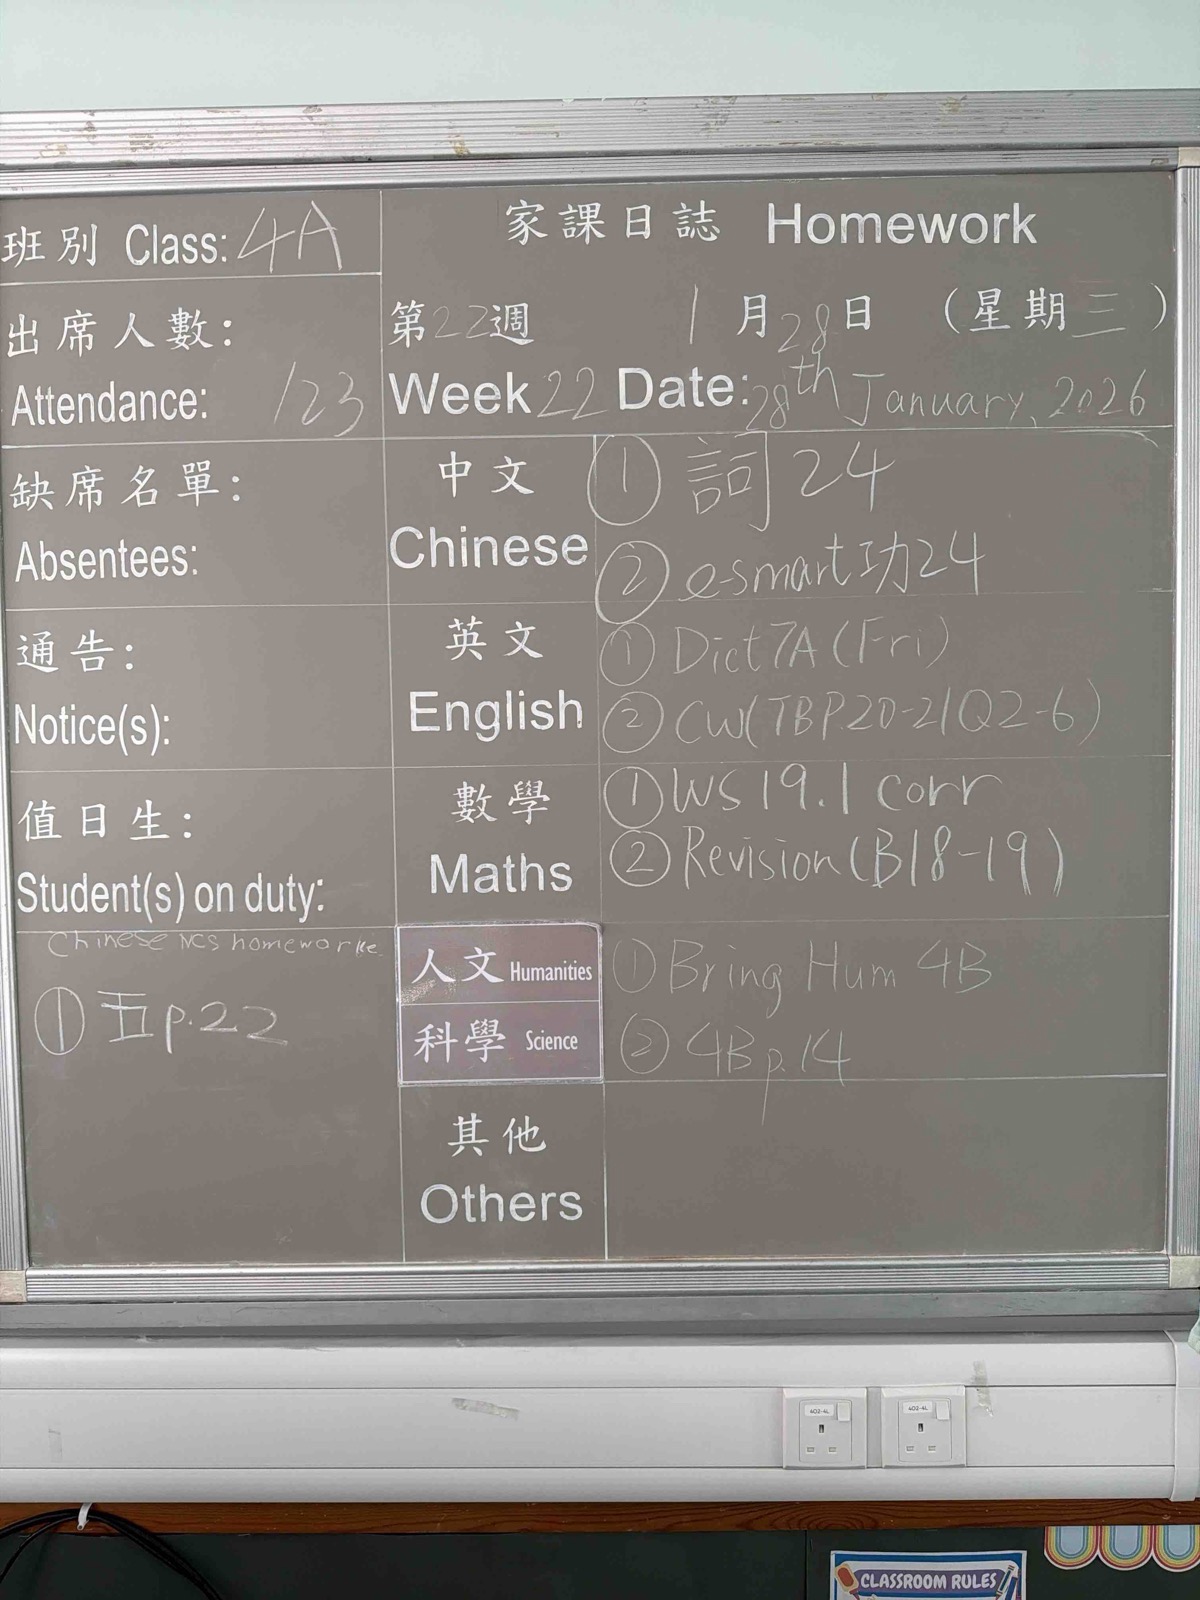 班別 Class: 4A
出席人數:
Attendance: /23
缺席名單:
Absentees:
通告:
Notice(s):
值日生:
Student(s) on duty:
Chinese NCS homeworke
① 五 p.22
家課日誌 Homework
第22週 1月28日 (星期三)
Week 22 Date: 28th January, 2026
中文
Chinese
① 詞24
② e-smart功24
英文
English
① Dict 7A (Fri)
② CW(TBP.20-21Q2-6)
數學
Maths
① WS 19.1 corr
② Revision (B18-19)
人文 Humanities
科學 Science
① Bring Hum 4B
② 4B p.14
其他
Others
402-4L
402-4L
CLASSROOM RULES